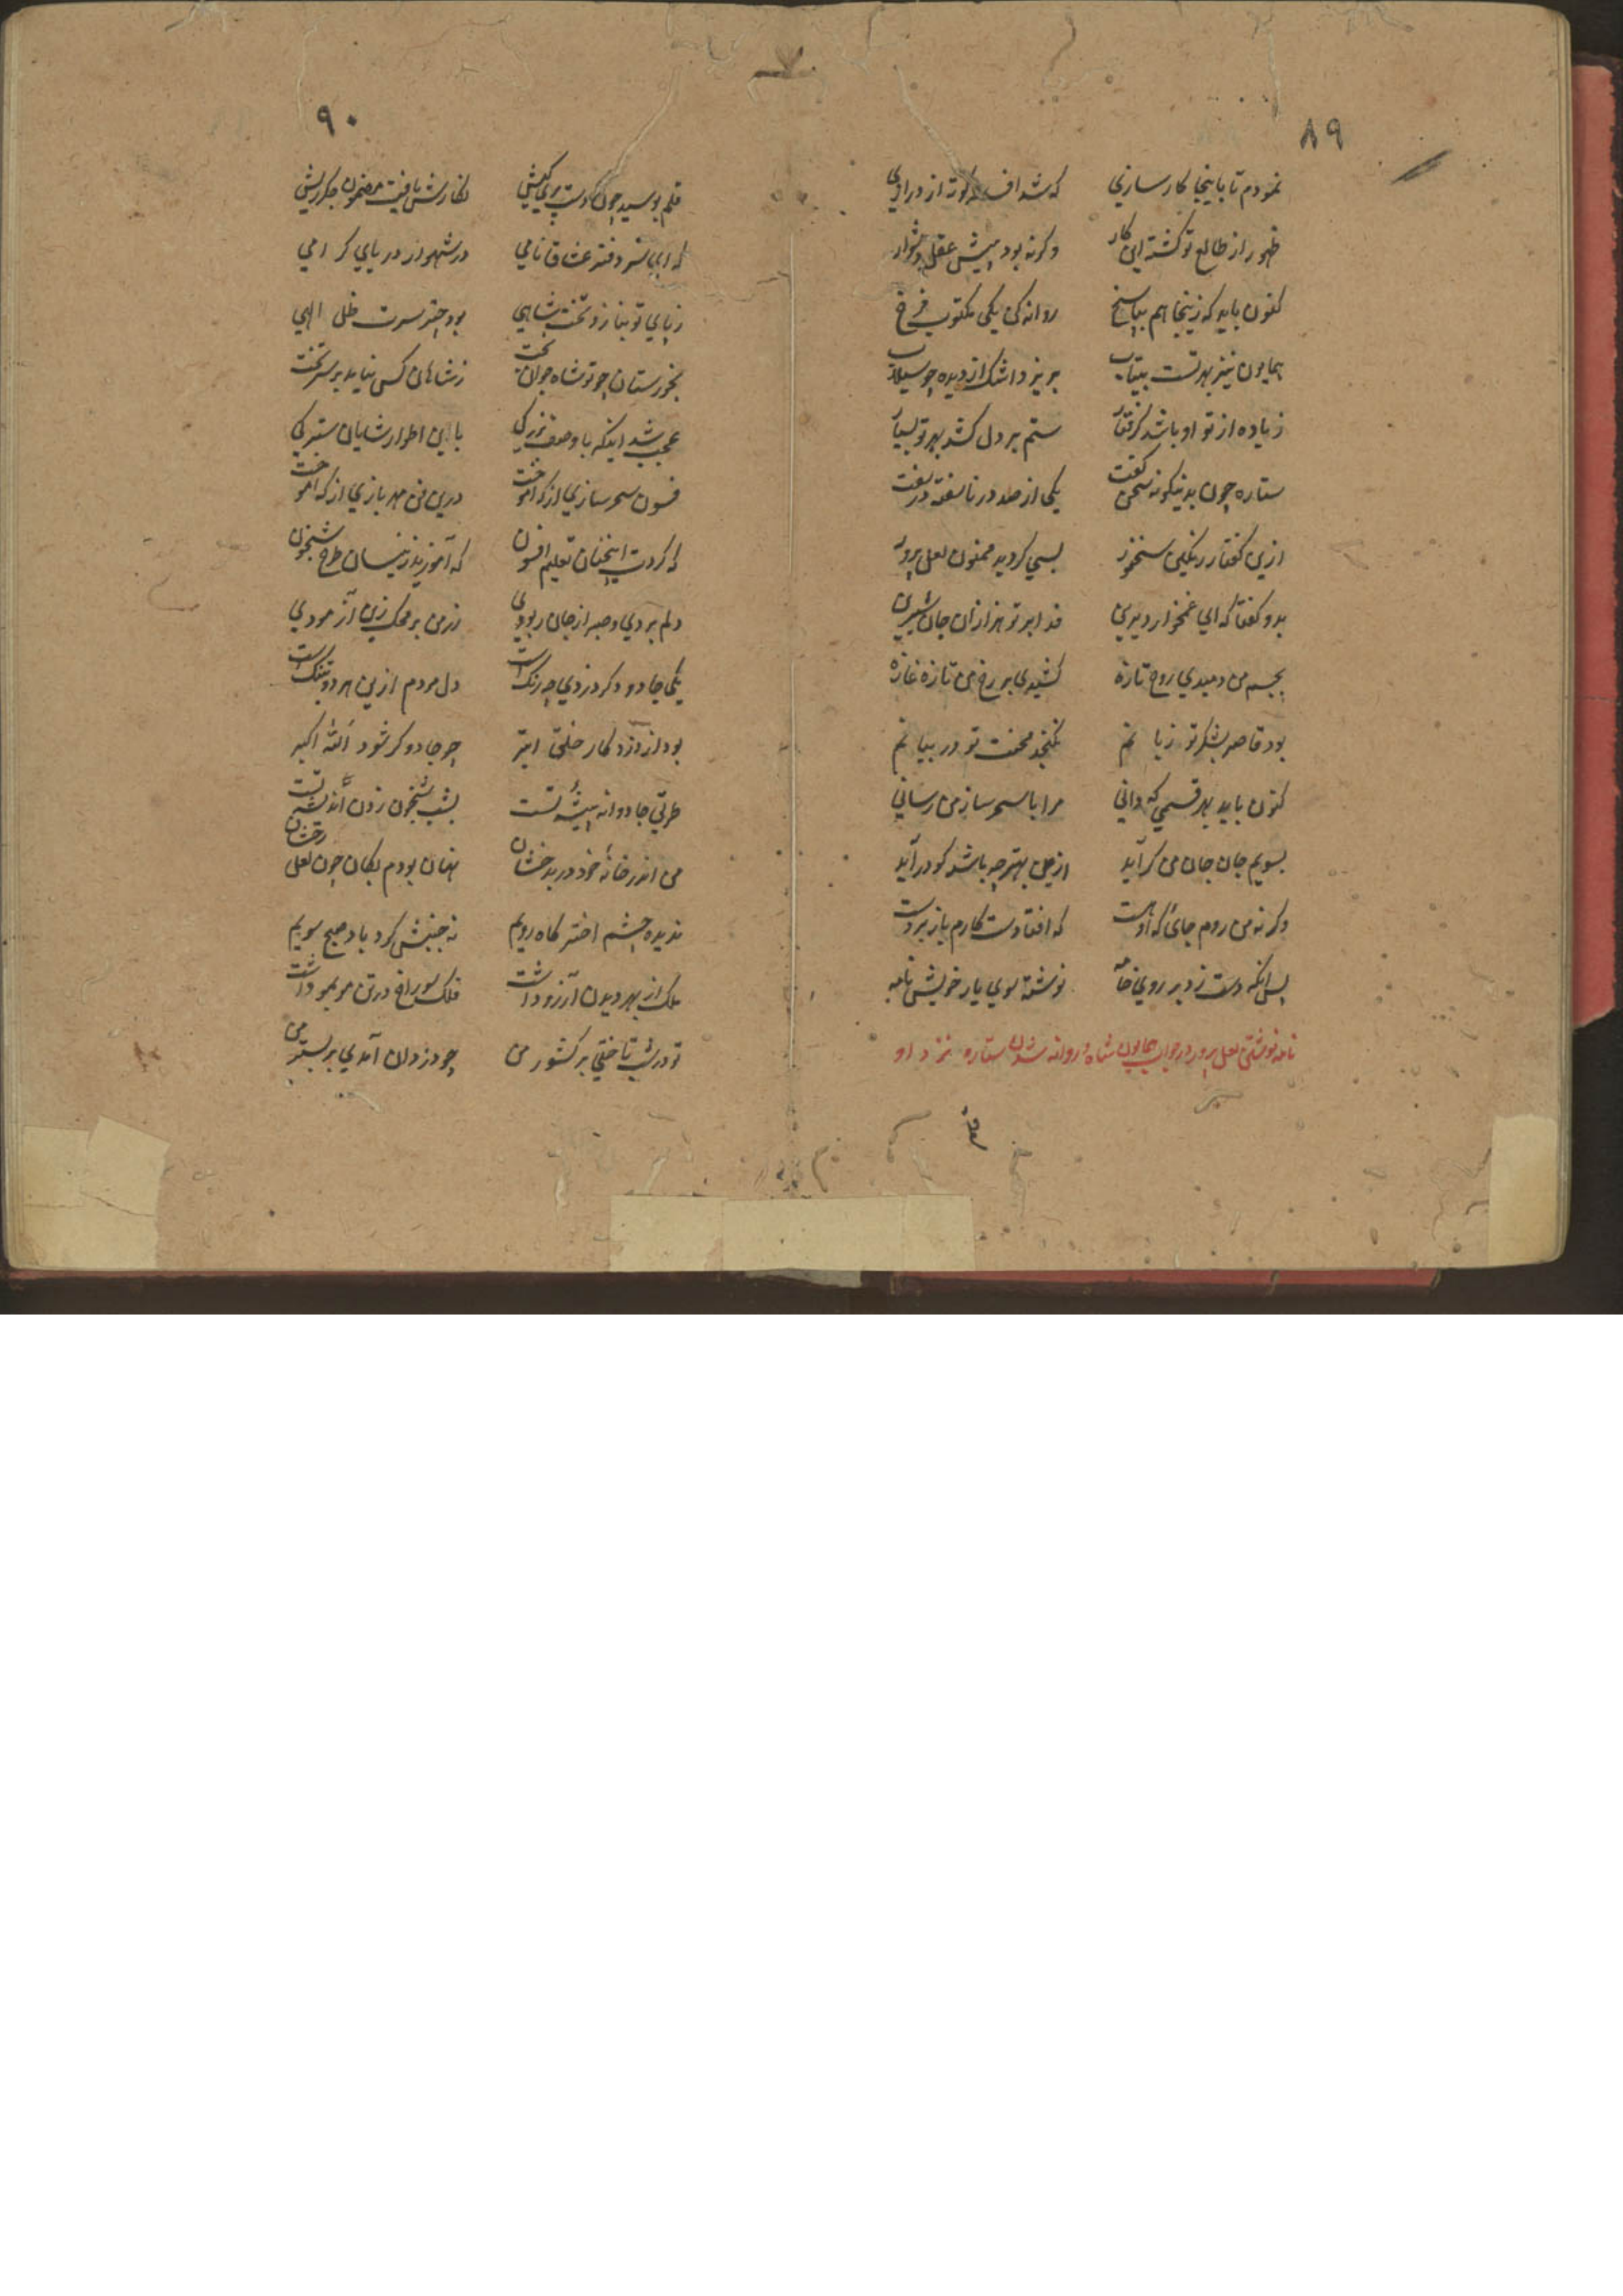 ۸۹
نمودم تا باینجا کارسازی که شد افسانه کوته از درازی
ظهور از طالع تو کشته این کار وکرنه بود پیش عقل دشوار
کنون باید که زینجا هم بپاسخ روانه کن یکی مکتوب فرخ
همایون نیز بهر تست بیتاب بریزد اشک از دیده چو سیلاب
زیاده از تو او باشد کرفتار ستم بر دل کشد بهر تو بسیار
ستاره چون بدینکونه سخن کفت یکی از صد در ناسفته در سفت
ازین کفتار رنکین سخنور بسی کردید ممنون لعل پرور
بدو کفتا که ای غمخوار دیرین فدا بر تو هزاران جان شیرین
بجسم من دمیدی روح تازه کشیدی بر رخ من تازه غازه
بود قاصر بشکر تو زبانم نکنجد محنت تو در بیانم
کنون باید بهر قسمی که دانی مرا با سحر ساز من رسانی
بسویم جان جان من کر آید ازین بهتر چه باشد کو در آید
وکرنه من روم جائی که او هست که افتادست کارم باز بر دست
پس انکه دست زد بر روی خامه نوشته سوی یار خویش نامه
نامه نوشتن لعل پرور در جواب همایون شاه و روانه شدن ستاره نزد او
قلم
۹۰
قلم بوسید چون دست پری کیش نکارش یافت مضمون جکرریش
که ای سر دفتر عشاق نامی در شهوار دریای کرامی
ز پای تو بنازد تخت شاهی بود چتر سرت ظل الهی
بخورستان چو تو شاه جوان بخت ز شاهان کس نیاید بر سر تخت
عجب شد اینکه با وصف بزرکی باین اطوار شایان سترکی
فسون سحر سازی از که اموخت درین فن مهر بازی از که اموخت
که کردت اینچنان تعلیم افسون که آموزید زینسان طرح شبخون
دلم بردی و صبر از جان ربودی زر من بر محک زین آزمودی
یکی جادو دکر دزدی چه رنکست دل مردم ازین هر دو بتنکست
بود از دزد کار خلق ابتر چو جادوکر شود الله اکبر
طریق جادوانه پیشهٔ تست بشب شبخون زدن اندیشهٔ تست
من اندر خانهٔ خود در بدخشان نهان بودم بکان چون لعل رخشان
ندیده چشم اختر کاه رویم نه جنبش کرد باد صبح سویم
ملک از بهر دیدن آرزو داشت فلک سوراخ در تن مو بمو داشت
تو در شب تاختی بر کشور من چو دزدان آمدی بر بستر من